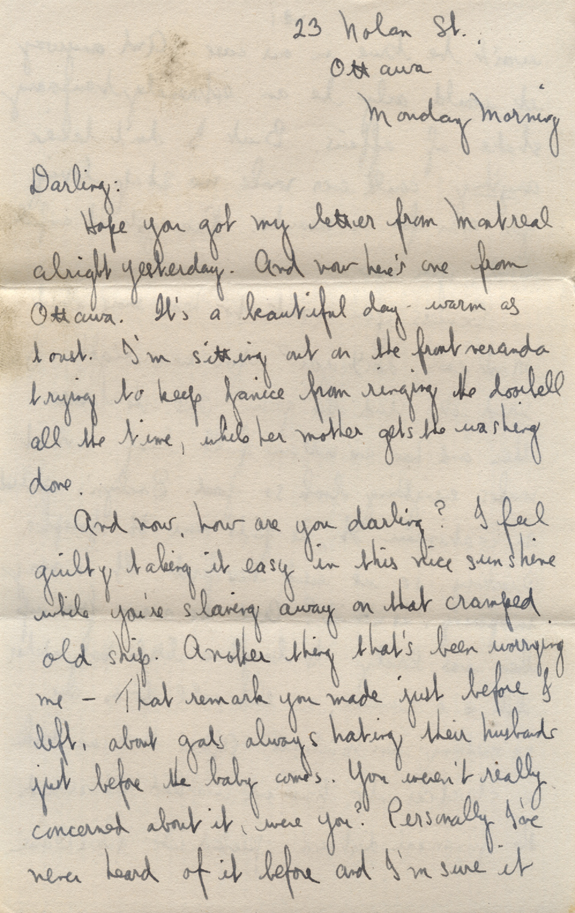 23 Nolan St.,
Ottawa
Monday Morning
Darling:
Hope you got my letter from Montreal
alright yesterday. And now here's one from
Ottawa. It's a beautiful day - warm as
toast. I'm sitting out on the front veranda
trying to keep Janice from ringing the doorbell
all the time, while her mother gets the washing
done.
And now, how are you darling? I feel
guilty taking it easy in this nice sunshine
while you're slaving away on that cramped
old ship. Another thing that's been worrying
me - That remark you made just before I
left, about gals always hating their husbands
just before the baby comes. You weren't really
concerned about it, were you? Personally I've
never heard of it before and I'm sure it